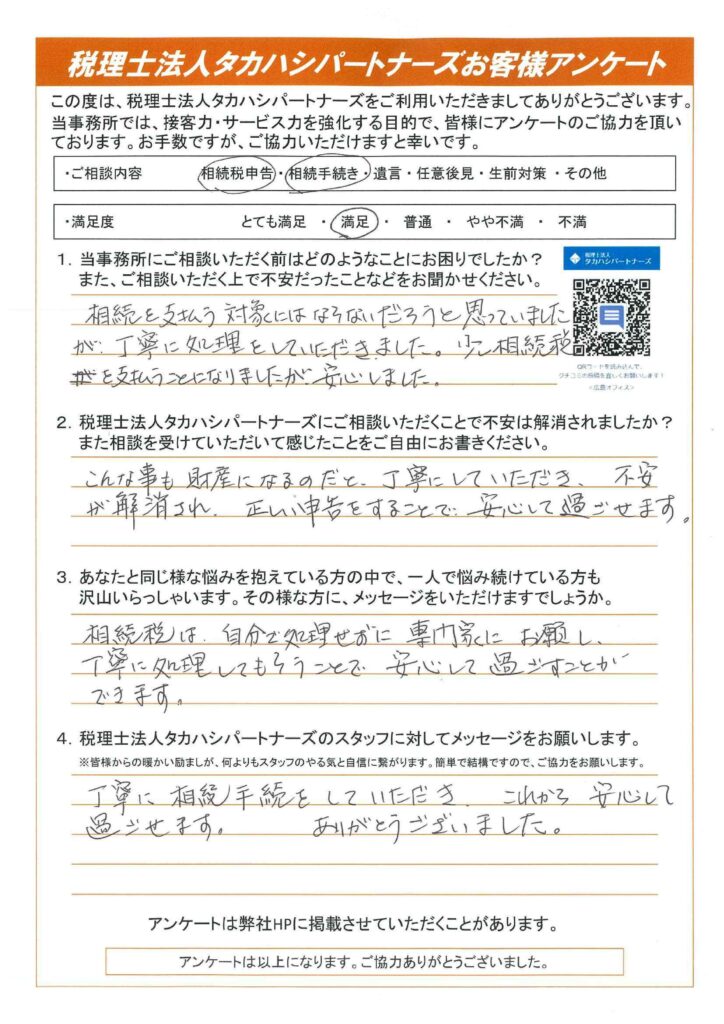 税理士法人タカハシパートナーズお客様アンケート
この度は、税理士法人タカハシパートナーズをご利用いただきましてありがとうございます。
当事務所では、接客力・サービス力を強化する目的で、皆様にアンケートのご協力を頂い
ております。お手数ですが、ご協力いただけますと幸いです。
・ご相談内容 相続税申告・相続手続き・遺言・任意後見・生前対策・その他
・満足度 とても満足 ・ 満足 ・ 普通 ・ やや不満 ・ 不満
1. 当事務所にご相談いただく前はどのようなことにお困りでしたか？
また、ご相談いただく上で不安だったことなどをお聞かせください。
税理士法人
タカハシパートナーズ
相続を支払う対象にはならないだろうと思っていました
が、丁寧に処理をしていただきました。少し相続税
を支払うことになりましたが、安心しました。
QRコードを読み込んで、
クチコミの投稿を宜しくお願いします！
<広島オフィス>
2. 税理士法人タカハシパートナーズにご相談いただくことで不安は解消されましたか？
また相談を受けていただいて感じたことをご自由にお書きください。
こんな事も財産になるのだと、丁寧にしていただき、不安
が解消され、正しい申告をすることで、安心して過ごせます。
3. あなたと同じ様な悩みを抱えている方の中で、一人で悩み続けている方も
沢山いらっしゃいます。その様な方に、メッセージをいただけますでしょうか。
相続税は、自分で処理せずに専門家にお願し、
丁寧に処理してもらうことで安心して過ごすことが
できます。
4. 税理士法人タカハシパートナーズのスタッフに対してメッセージをお願いします。
※皆様からの暖かい励ましが、何よりもスタッフのやる気と自信に繋がります。簡単で結構ですので、ご協力をお願いします。
丁寧に相続手続をしていただき、これから安心して
過ごせます。 ありがとうございました。
アンケートは弊社HPに掲載させていただくことがあります。
アンケートは以上になります。ご協力ありがとうございました。